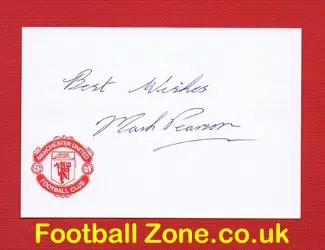 Best Wishes
Mark Pearson
MANCHESTER UNITED
FOOTBALL CLUB
Football Zone.co.uk